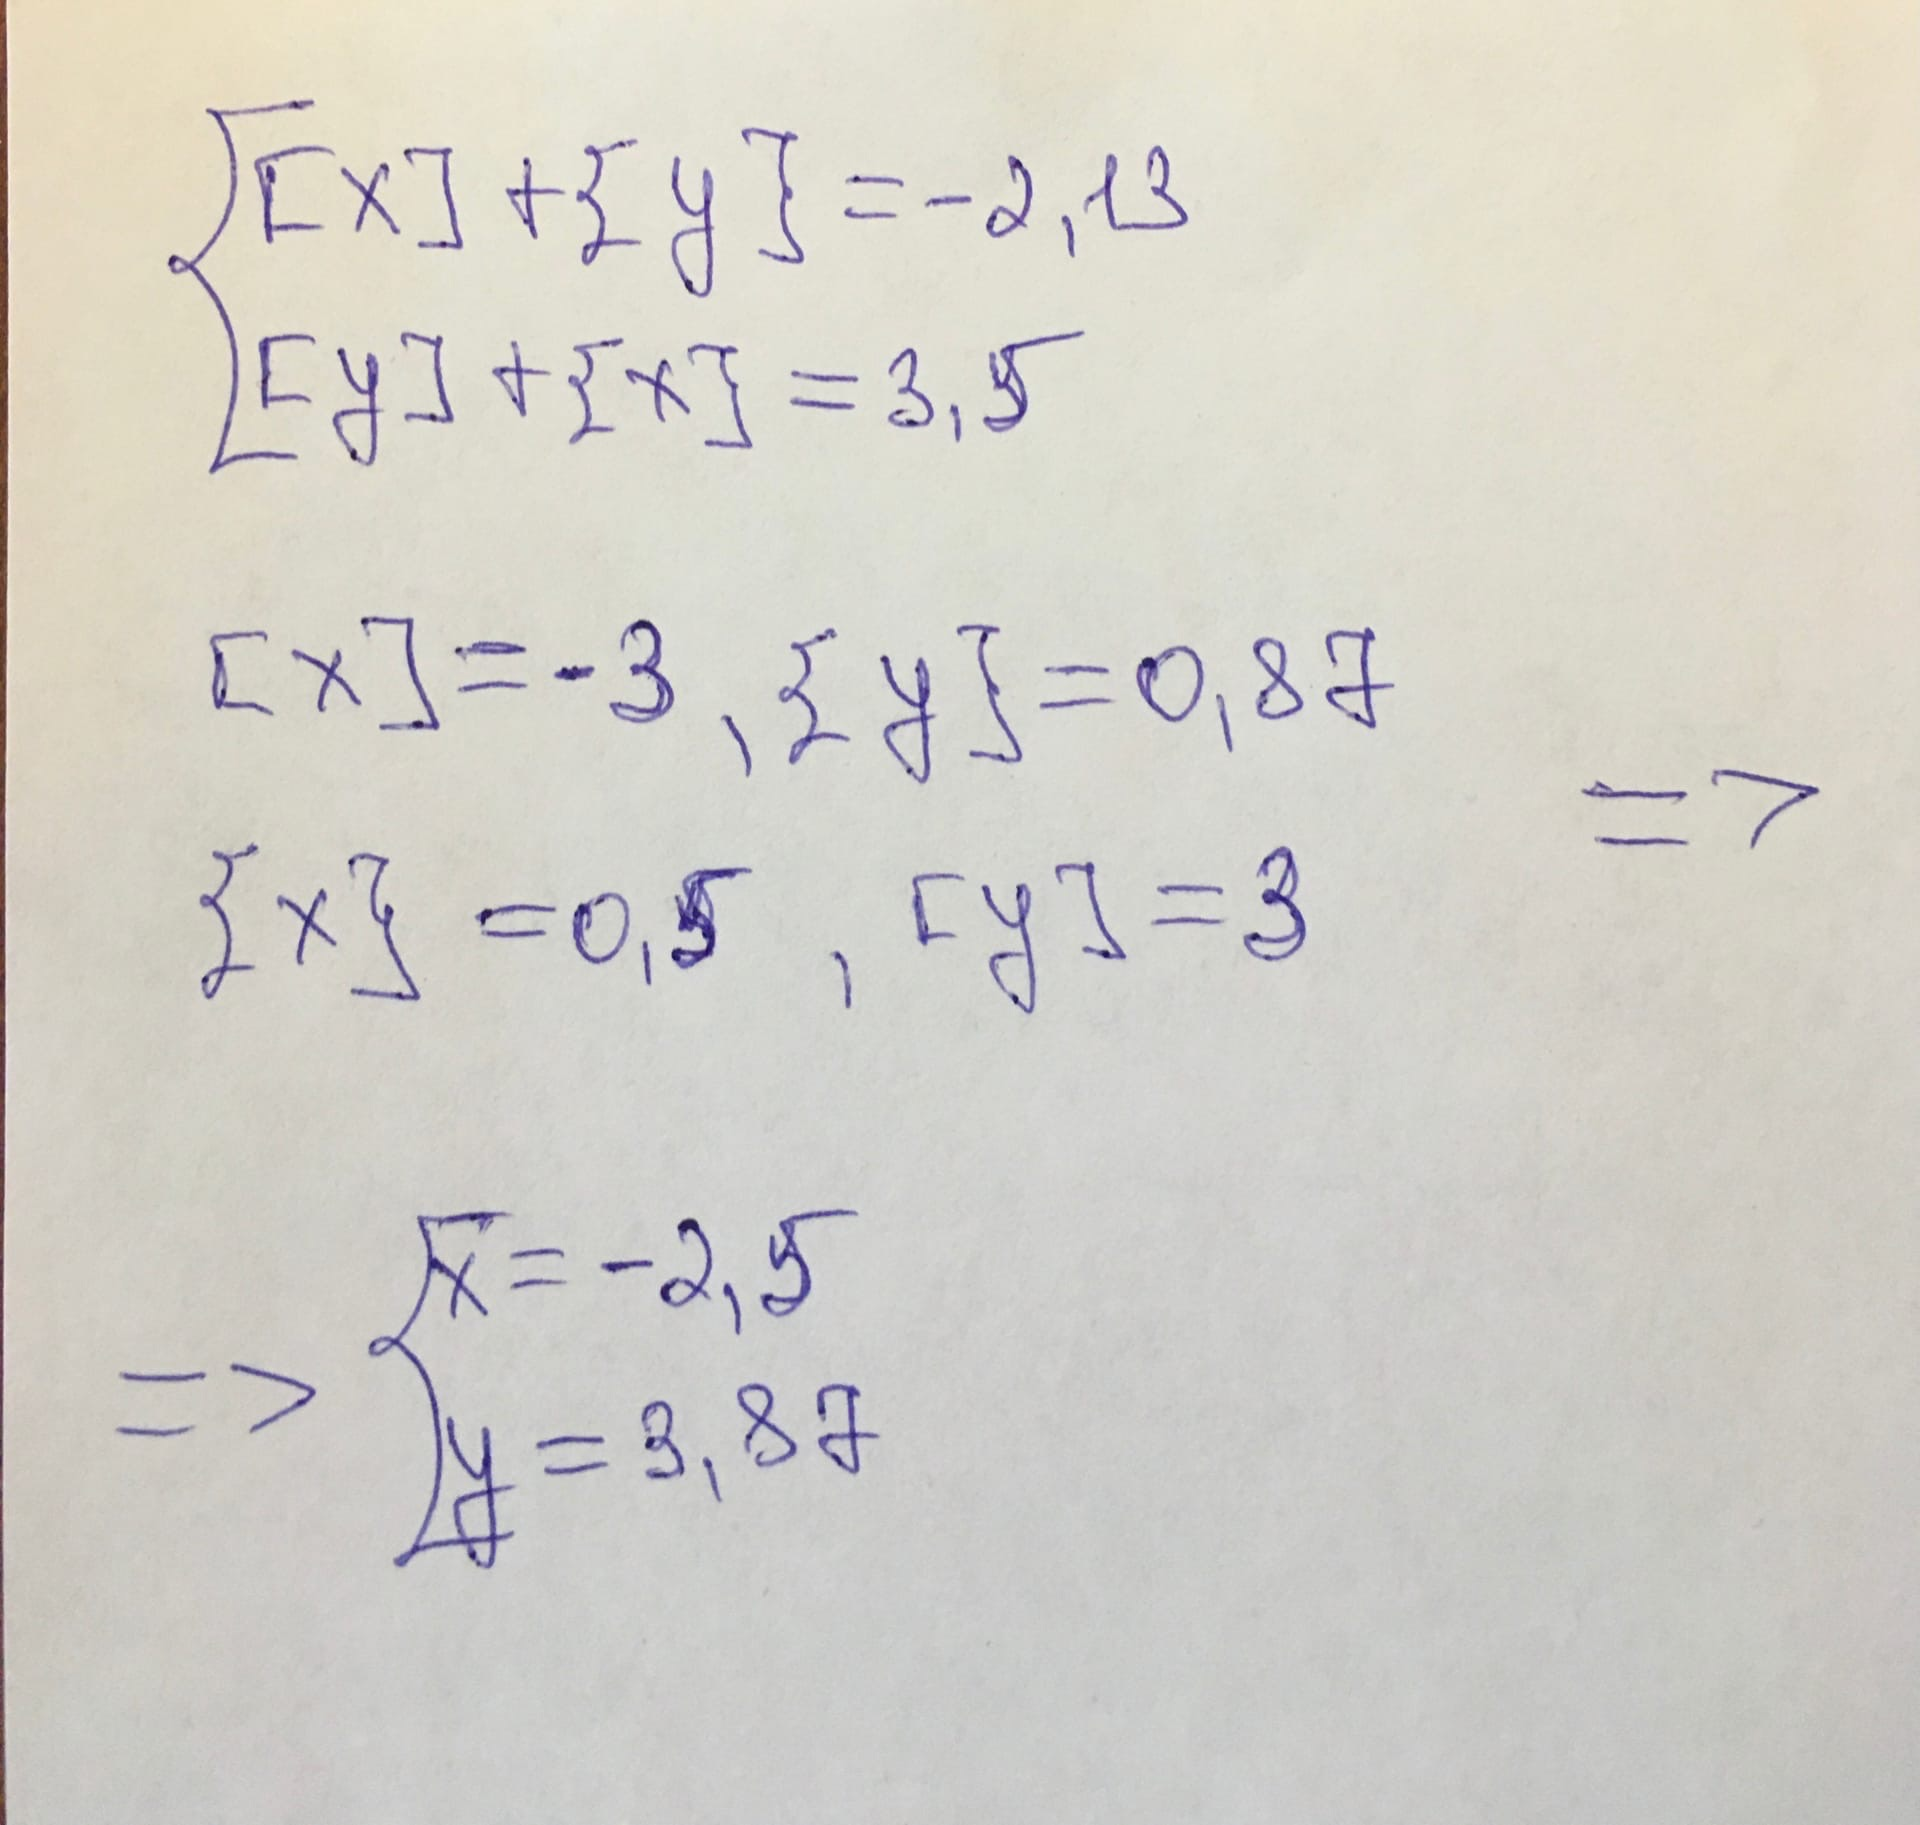 [x] + {y} = -2,13
[y] + {x} = 3,5
[x] = -3, {y} = 0,87
=>
{x} = 0,5, [y] = 3
x = -2,5
=>
y = 3,87